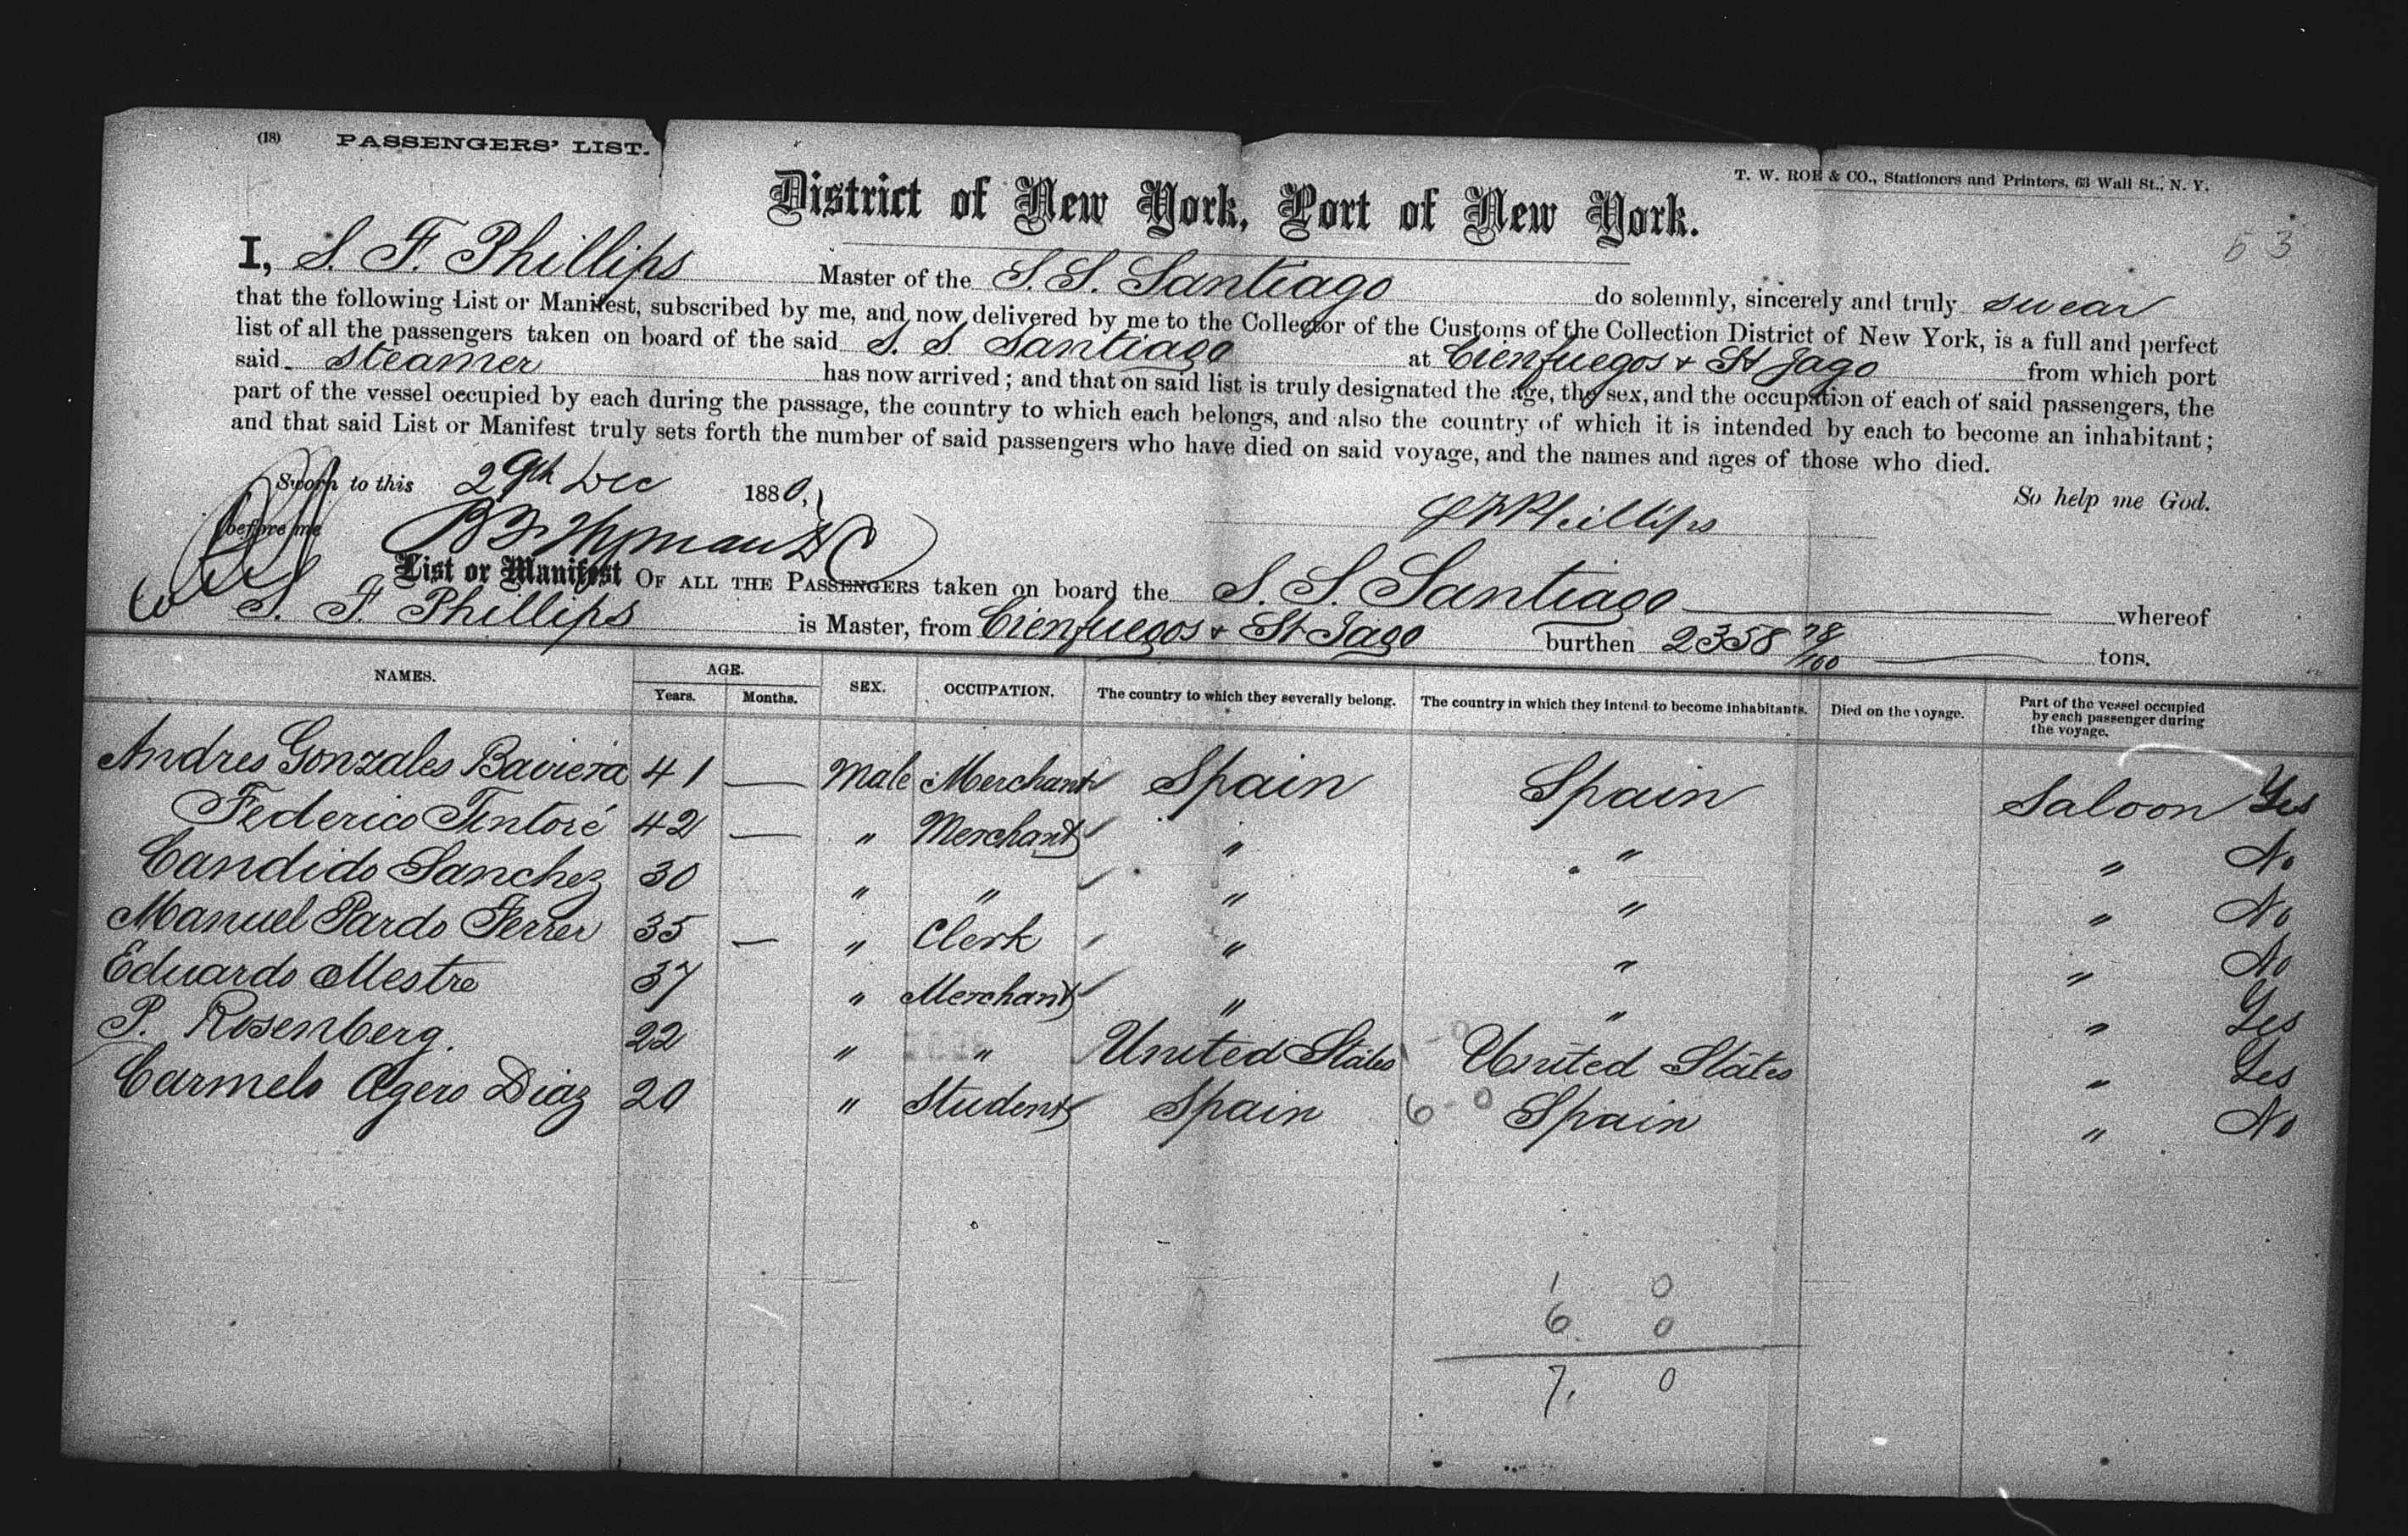 (18) PASSENGERS' LIST.
T. W. ROE & CO., Stationers and Printers, 63 Wall St., N. Y.
District of New York, Port of New York.
53
I, S. F. Phillips Master of the S. S. Santiago do solemnly, sincerely and truly swear
that the following List or Manifest, subscribed by me, and now delivered by me to the Collector of the Customs of the Collection District of New York, is a full and perfect
list of all the passengers taken on board of the said S. S. Santiago at Cienfuegos & St Jago from which port
said steamer has now arrived; and that on said list is truly designated the age, the sex, and the occupation of each of said passengers, the
part of the vessel occupied by each during the passage, the country to which each belongs, and also the country of which it is intended by each to become an inhabitant;
and that said List or Manifest truly sets forth the number of said passengers who have died on said voyage, and the names and ages of those who died.
So help me God.
Sworn to this 29th Dec 1880,
before me
S F Phillips
List or Manifest OF ALL THE PASSENGERS taken on board the S. S. Santiago whereof
S. F. Phillips is Master, from Cienfuegos & St Jago burthen 2358 78/100 tons.
NAMES. AGE. SEX. OCCUPATION. The country to which they severally belong. The country in which they intend to become inhabitants. Died on the voyage. Part of the vessel occupied by each passenger during the voyage.
Years. Months.
Andres Gonzales Baviera 41 — Male Merchant Spain Spain Saloon Yes
Federico Tintoré 42 — " Merchant " " " No
Candido Sanchez 30 " " " " " No
Manuel Pardo Ferrer 35 — " Clerk " " " No
Eduardo Mestre 37 " Merchant " " " Yes
P. Rosenberg. 22 " " United States 1-0 United States " Yes
Carmelo Agero Diaz 20 " Student Spain 6-0 Spain " No
1 0
6 0
7. 0